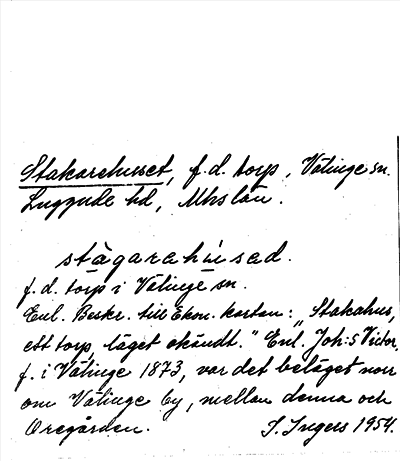 Stakarehuset, f.d. torp, Välinge sn.
Luggude hd, Mhs län.
stàgarahúsad.
f.d. torp i Välinge sn.
Enl. Beskr. till Ekon. kartan: "Stakahus,
ett torp, läget okändt." Enl. Joh:s Victor,
f. i Välinge 1873, var det beläget norr
om Välinge by, mellan denna och
Oregården. I. Ingers 1954.